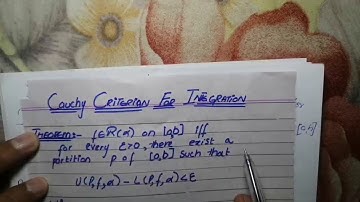 Cauchy Criterion For Integration
Theorem:- f∈R(α) on [a,b] iff
for every ε>0, there exist a
partition P of [a,b] such that
U(P,f,α) - L(P,f,α) < ε